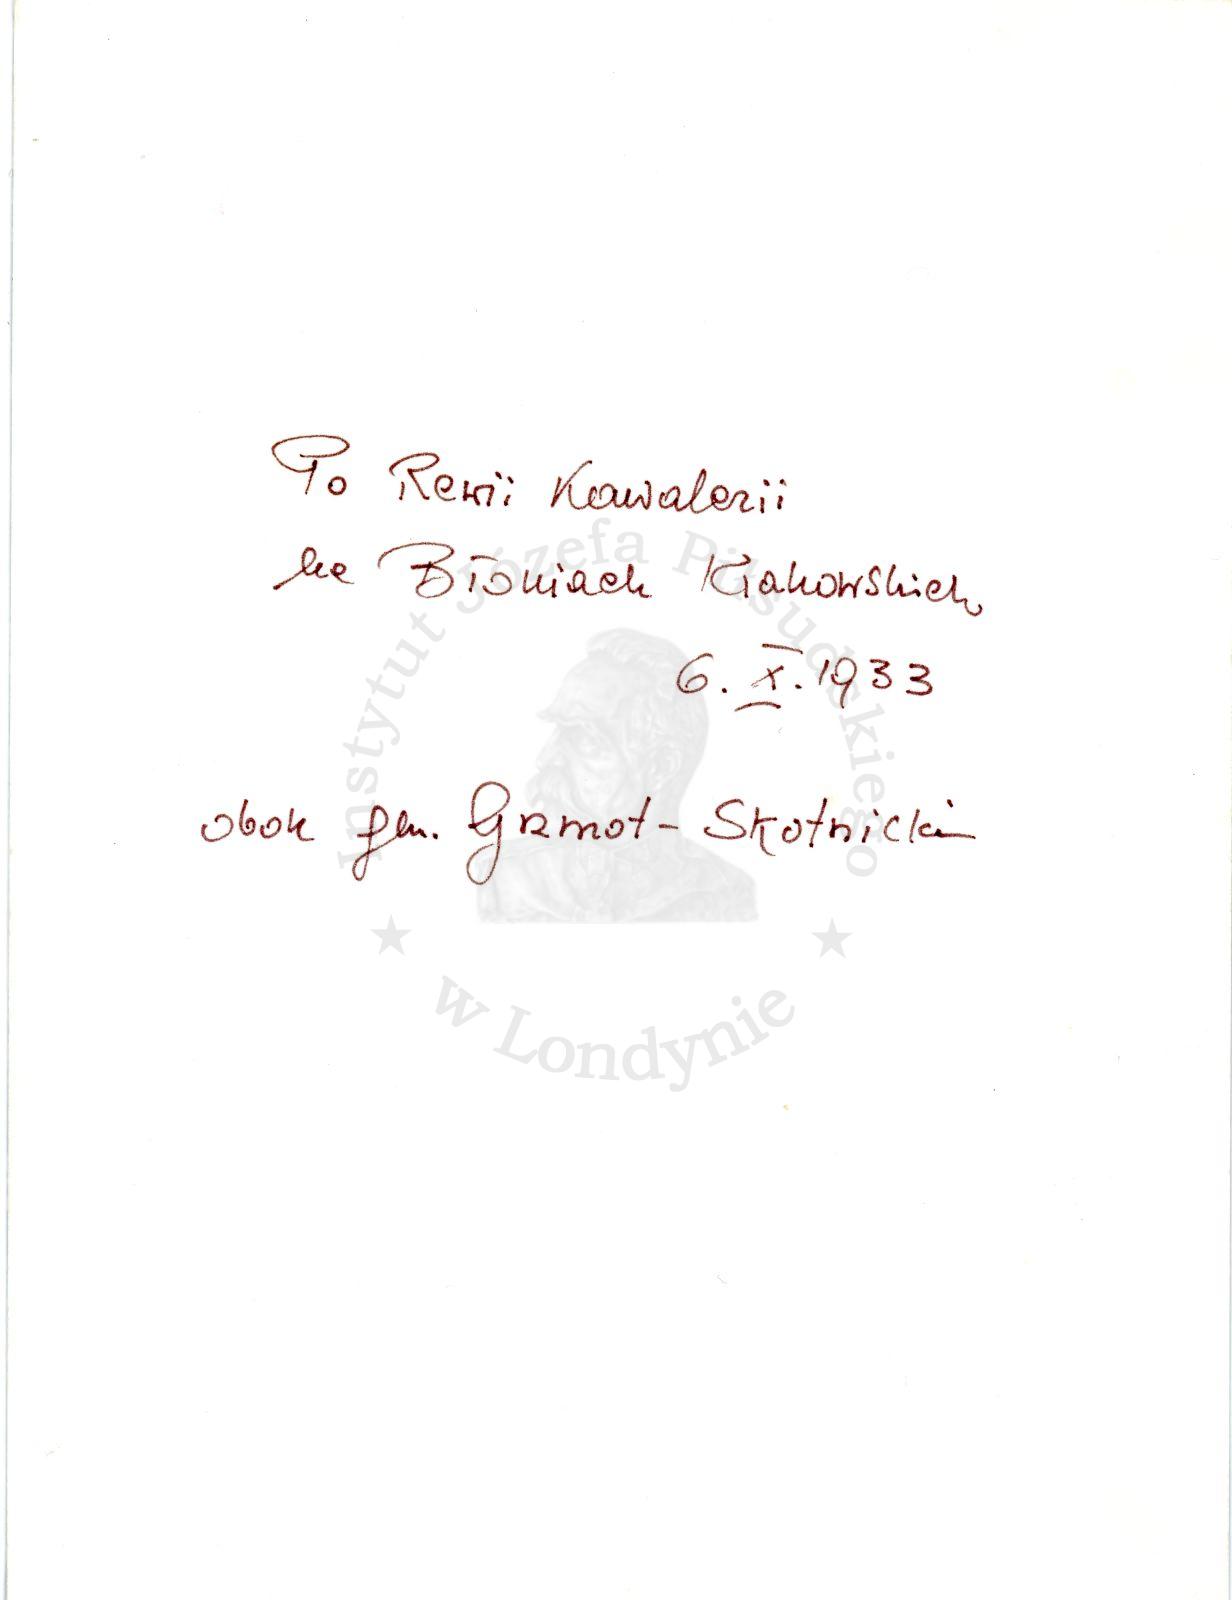 Po Rewii Kawalerii
na Błoniach Krakowskich
6. X. 1933
obok gen. Grzmot-Skotnicki
Instytut Józefa Piłsudskiego
w Londynie